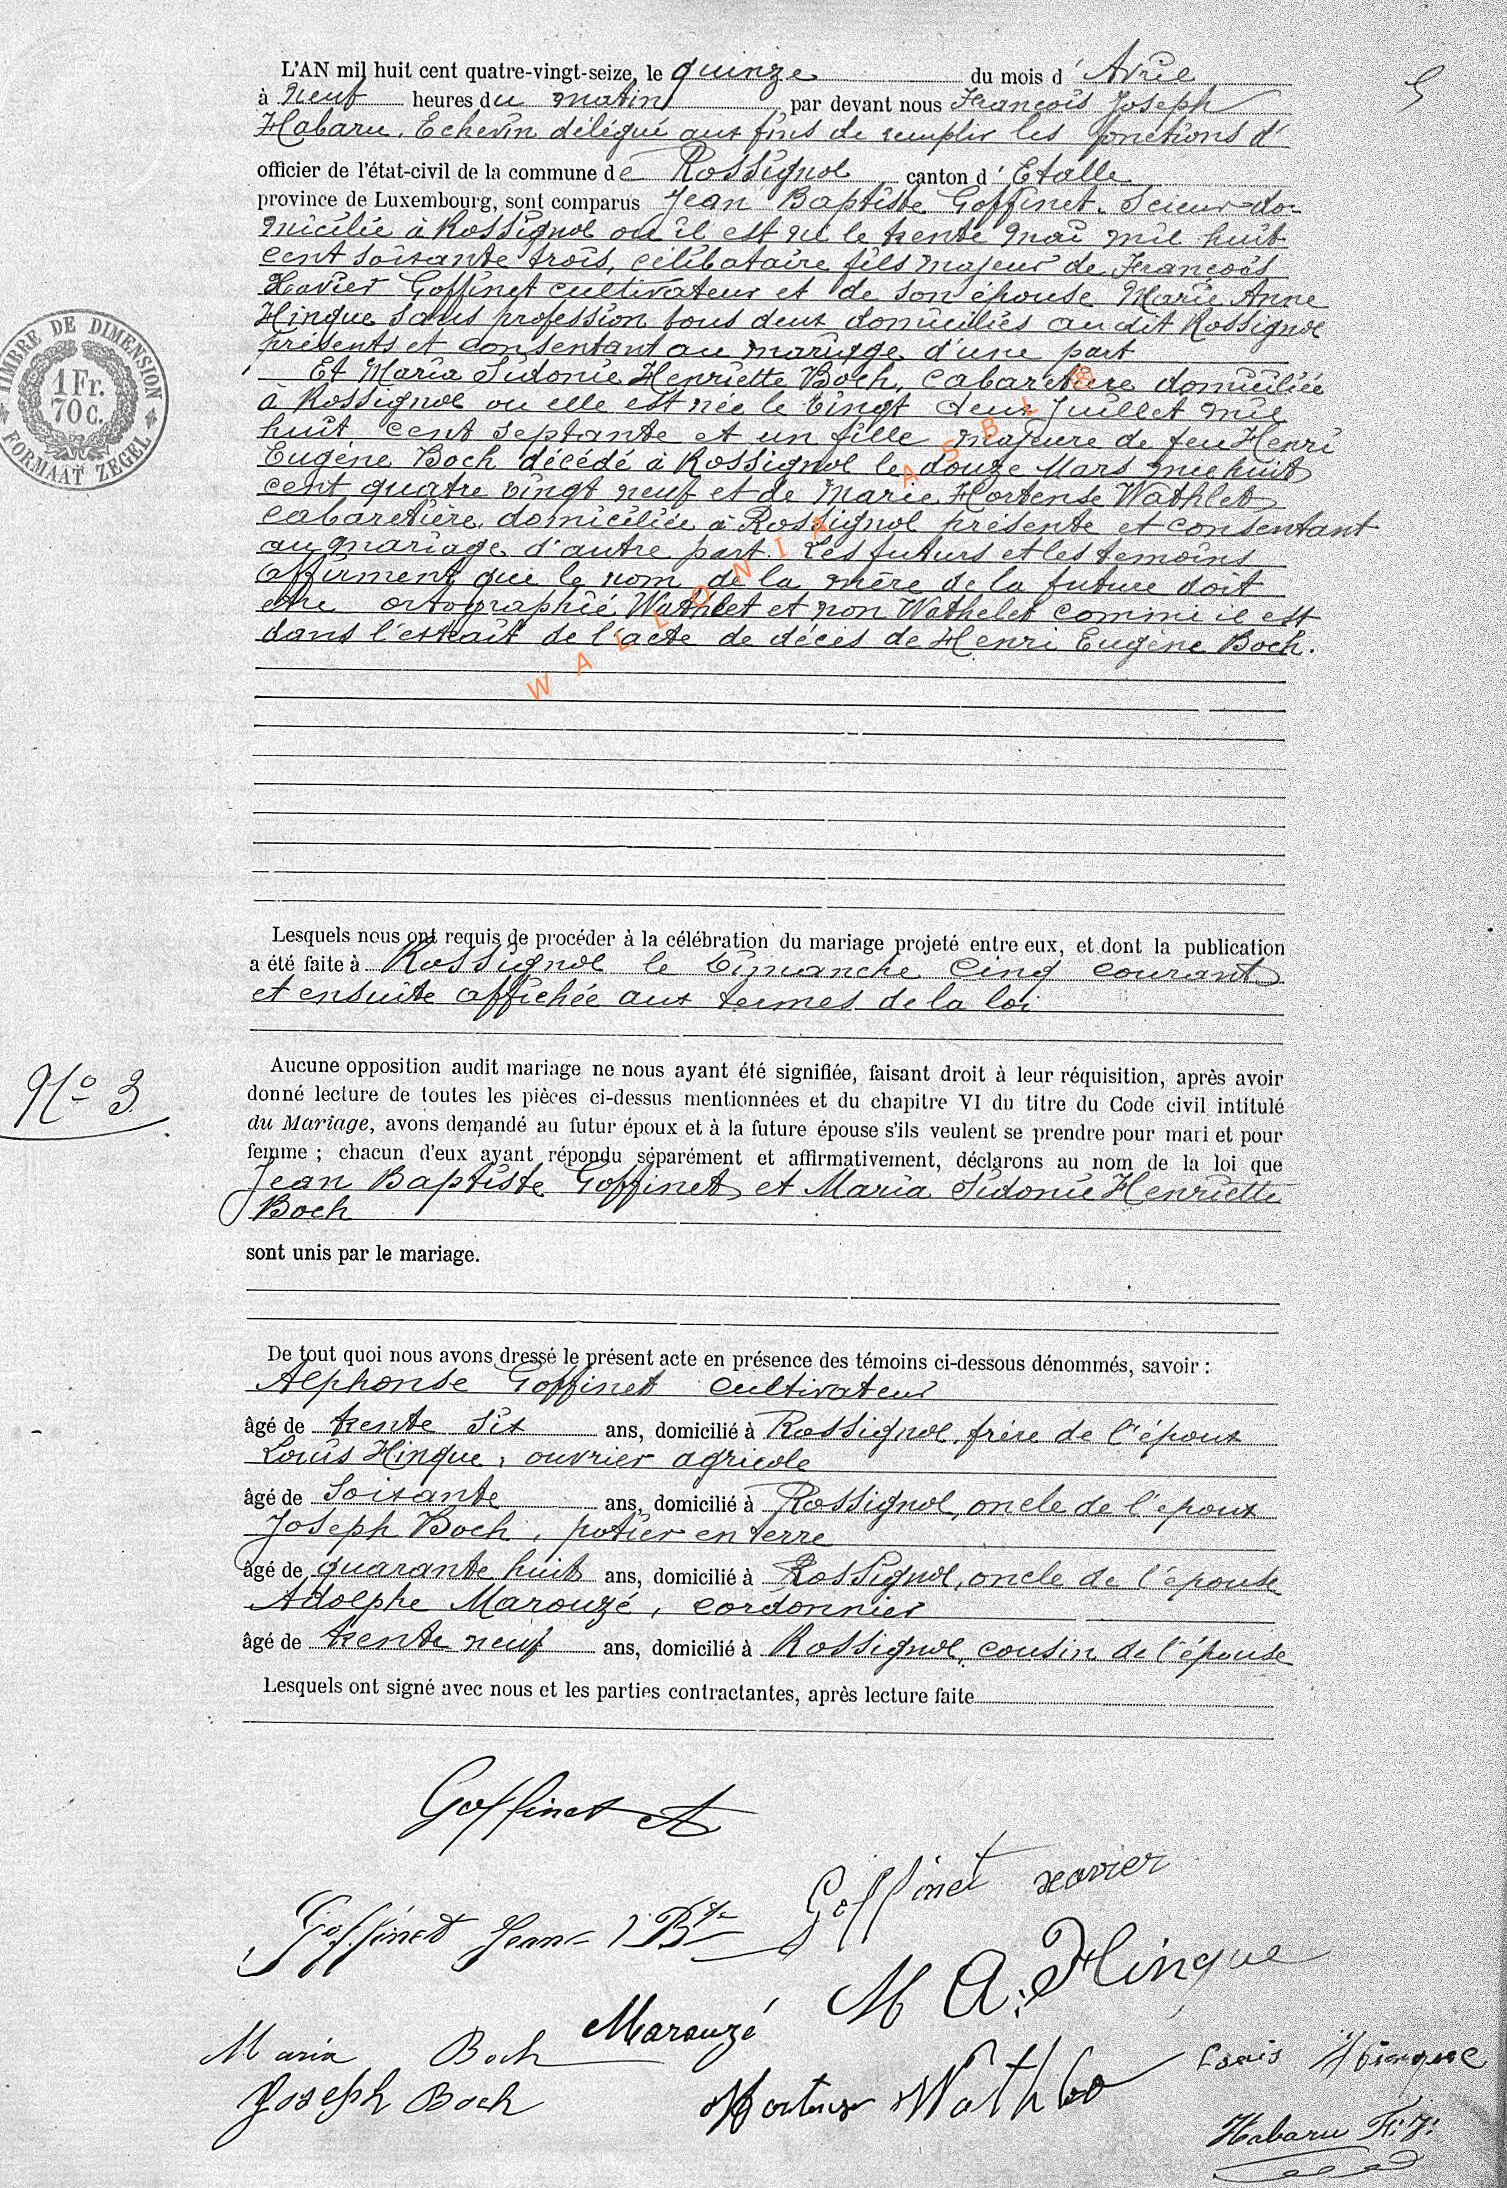 L'AN mil huit cent quatre-vingt-seize, le quinze du mois d' Avril
à neuf heures du matin, par devant nous François Joseph
Habaru, Echevin délégué aux fins de remplir les fonctions d'
officier de l'état-civil de la commune de Rossignol canton d' Etalle
province de Luxembourg, sont comparus Jean Baptiste Goffinet, Scieur do-
micilié à Rossignol ou il est né le trente mai mil huit
cent soixante trois, célibataire fils majeur de François
Xavier Goffinet cultivateur et de son épouse Marie Anne
Hinque sans profession tous deux domiciliés au dit Rossignol
présents et consentant au mariage, d'une part
Et Maria Sidonie Henriette Boch, cabaretière domiciliée
à Rossignol ou elle est née le vingt deux Juillet mil
huit cent septante et un fille majeure de feu Henri
Eugène Boch décédé à Rossignol le douze Mars mil huit
cent quatre vingt neuf et de Marie Hortense Wathlet
cabaretière domiciliée à Rossignol présente et consentant
au mariage d'autre part. Les futurs et les temoins
affirment que le nom de la mère de la future doit
etre ortographié Wathlet et non Wathelet comme il est
dans l'extrait de l'acte de décès de Henri Eugène Boch.
WALLONIA ASBL
TIMBRE DE DIMENSION
1 Fr.
70 c.
FORMAAT ZEGEL
Lesquels nous ont requis de procéder à la célébration du mariage projeté entre eux, et dont la publication
a été faite à Rossignol le Dimanche cinq courant
et ensuite affichée aux termes de la loi
Aucune opposition audit mariage ne nous ayant été signifiée, faisant droit à leur réquisition, après avoir
donné lecture de toutes les pièces ci-dessus mentionnées et du chapitre VI du titre du Code civil intitulé
du Mariage, avons demandé au futur époux et à la future épouse s'ils veulent se prendre pour mari et pour
femme ; chacun d'eux ayant répondu séparément et affirmativement, déclarons au nom de la loi que
Jean Baptiste Goffinet et Maria Sidonie Henriette
Boch
sont unis par le mariage.
No 3
De tout quoi nous avons dressé le présent acte en présence des témoins ci-dessous dénommés, savoir :
Alphonse Goffinet cultivateur
âgé de trente six ans, domicilié à Rossignol, frère de l'époux
Louis Hinque, ouvrier agricole
âgé de Soixante ans, domicilié à Rossignol, oncle de l'époux
Joseph Boch, potier en terre
âgé de quarante huit ans, domicilié à Rossignol, oncle de l'épouse
Adolphe Marouzé, cordonnier
âgé de trente neuf ans, domicilié à Rossignol, cousin de l'épouse
Lesquels ont signé avec nous et les parties contractantes, après lecture faite
Goffinet A
Goffinet xavier
Goffinet Jean Bte
M A. Hinque
Marouzé
Maria Boch
Louis Hinque
Joseph Boch
Hortense
Habaru F. J.